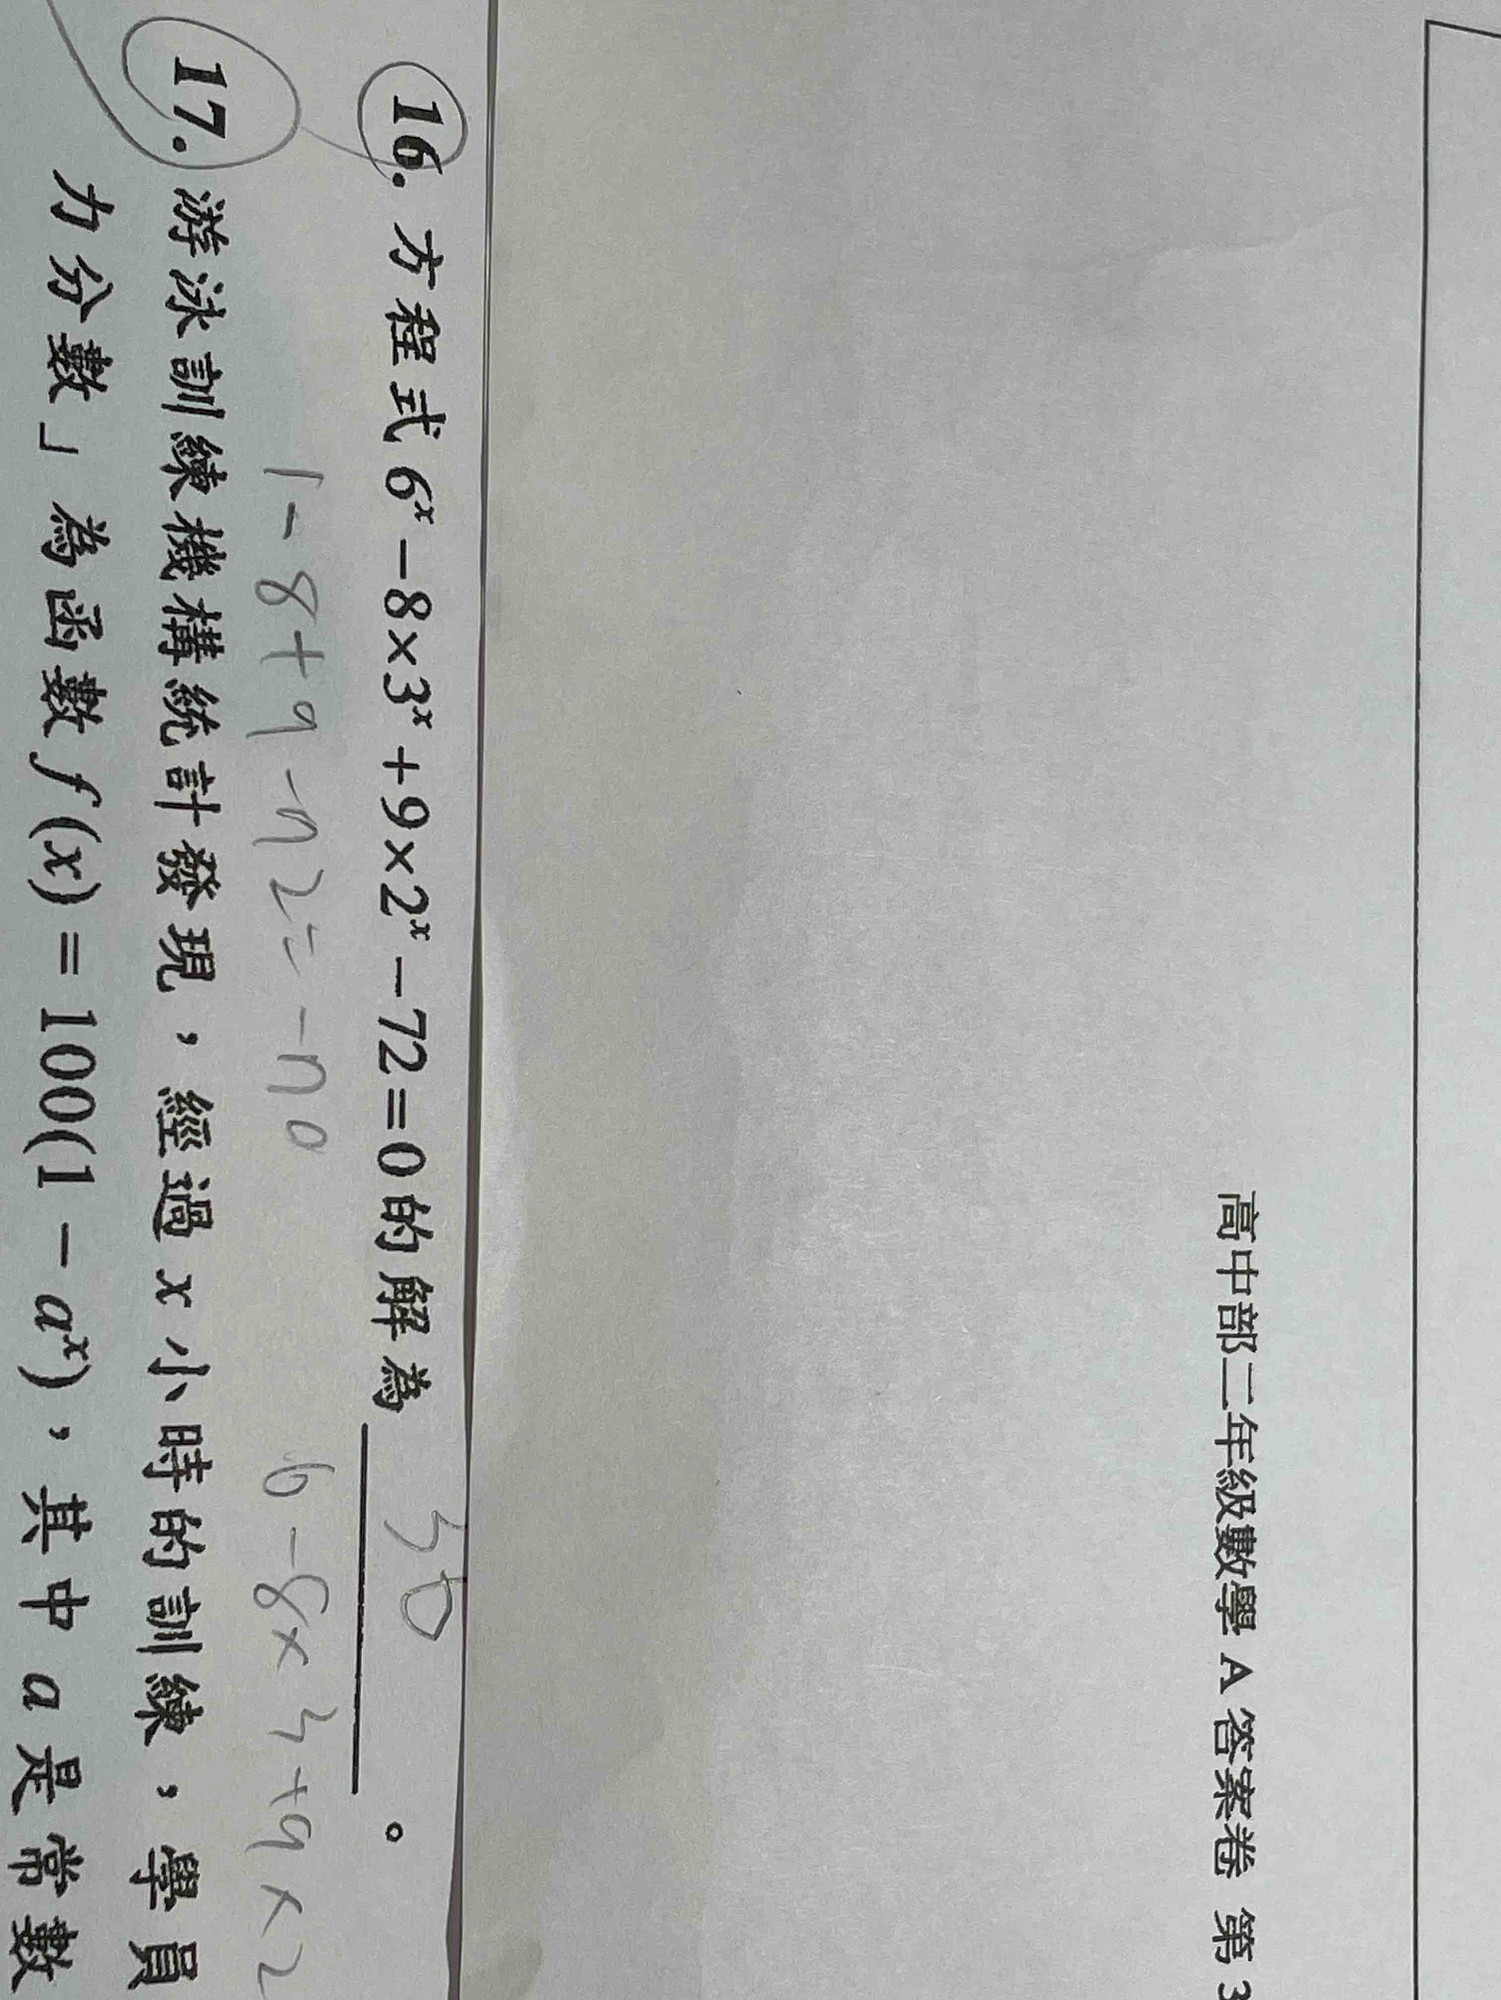 高中部二年級數學 A 答案卷 第 3
16. 方程式 6ˣ－8×3ˣ＋9×2ˣ－72＝0 的解為＿＿＿＿。
30
1-8+9-72=-70
6-8×3+9×2
17. 游泳訓練機構統計發現，經過 x 小時的訓練，學員
力分數」為函數 f(x)＝100(1－aˣ)，其中 a 是常數